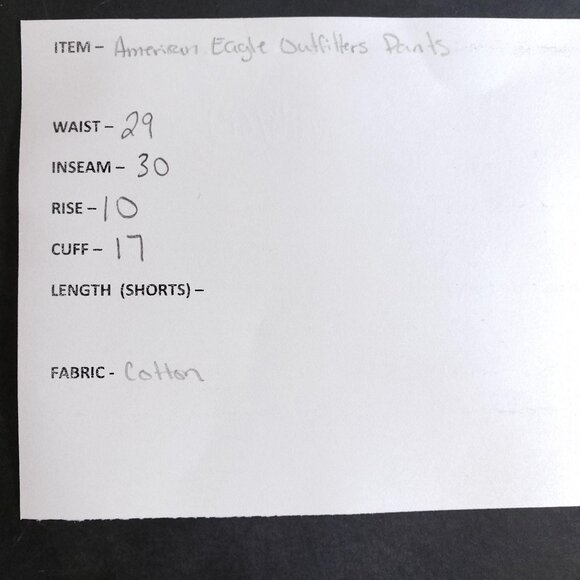 ITEM – American Eagle Outfitters Pants
WAIST – 29
INSEAM – 30
RISE – 10
CUFF – 17
LENGTH (SHORTS) –
FABRIC - Cotton